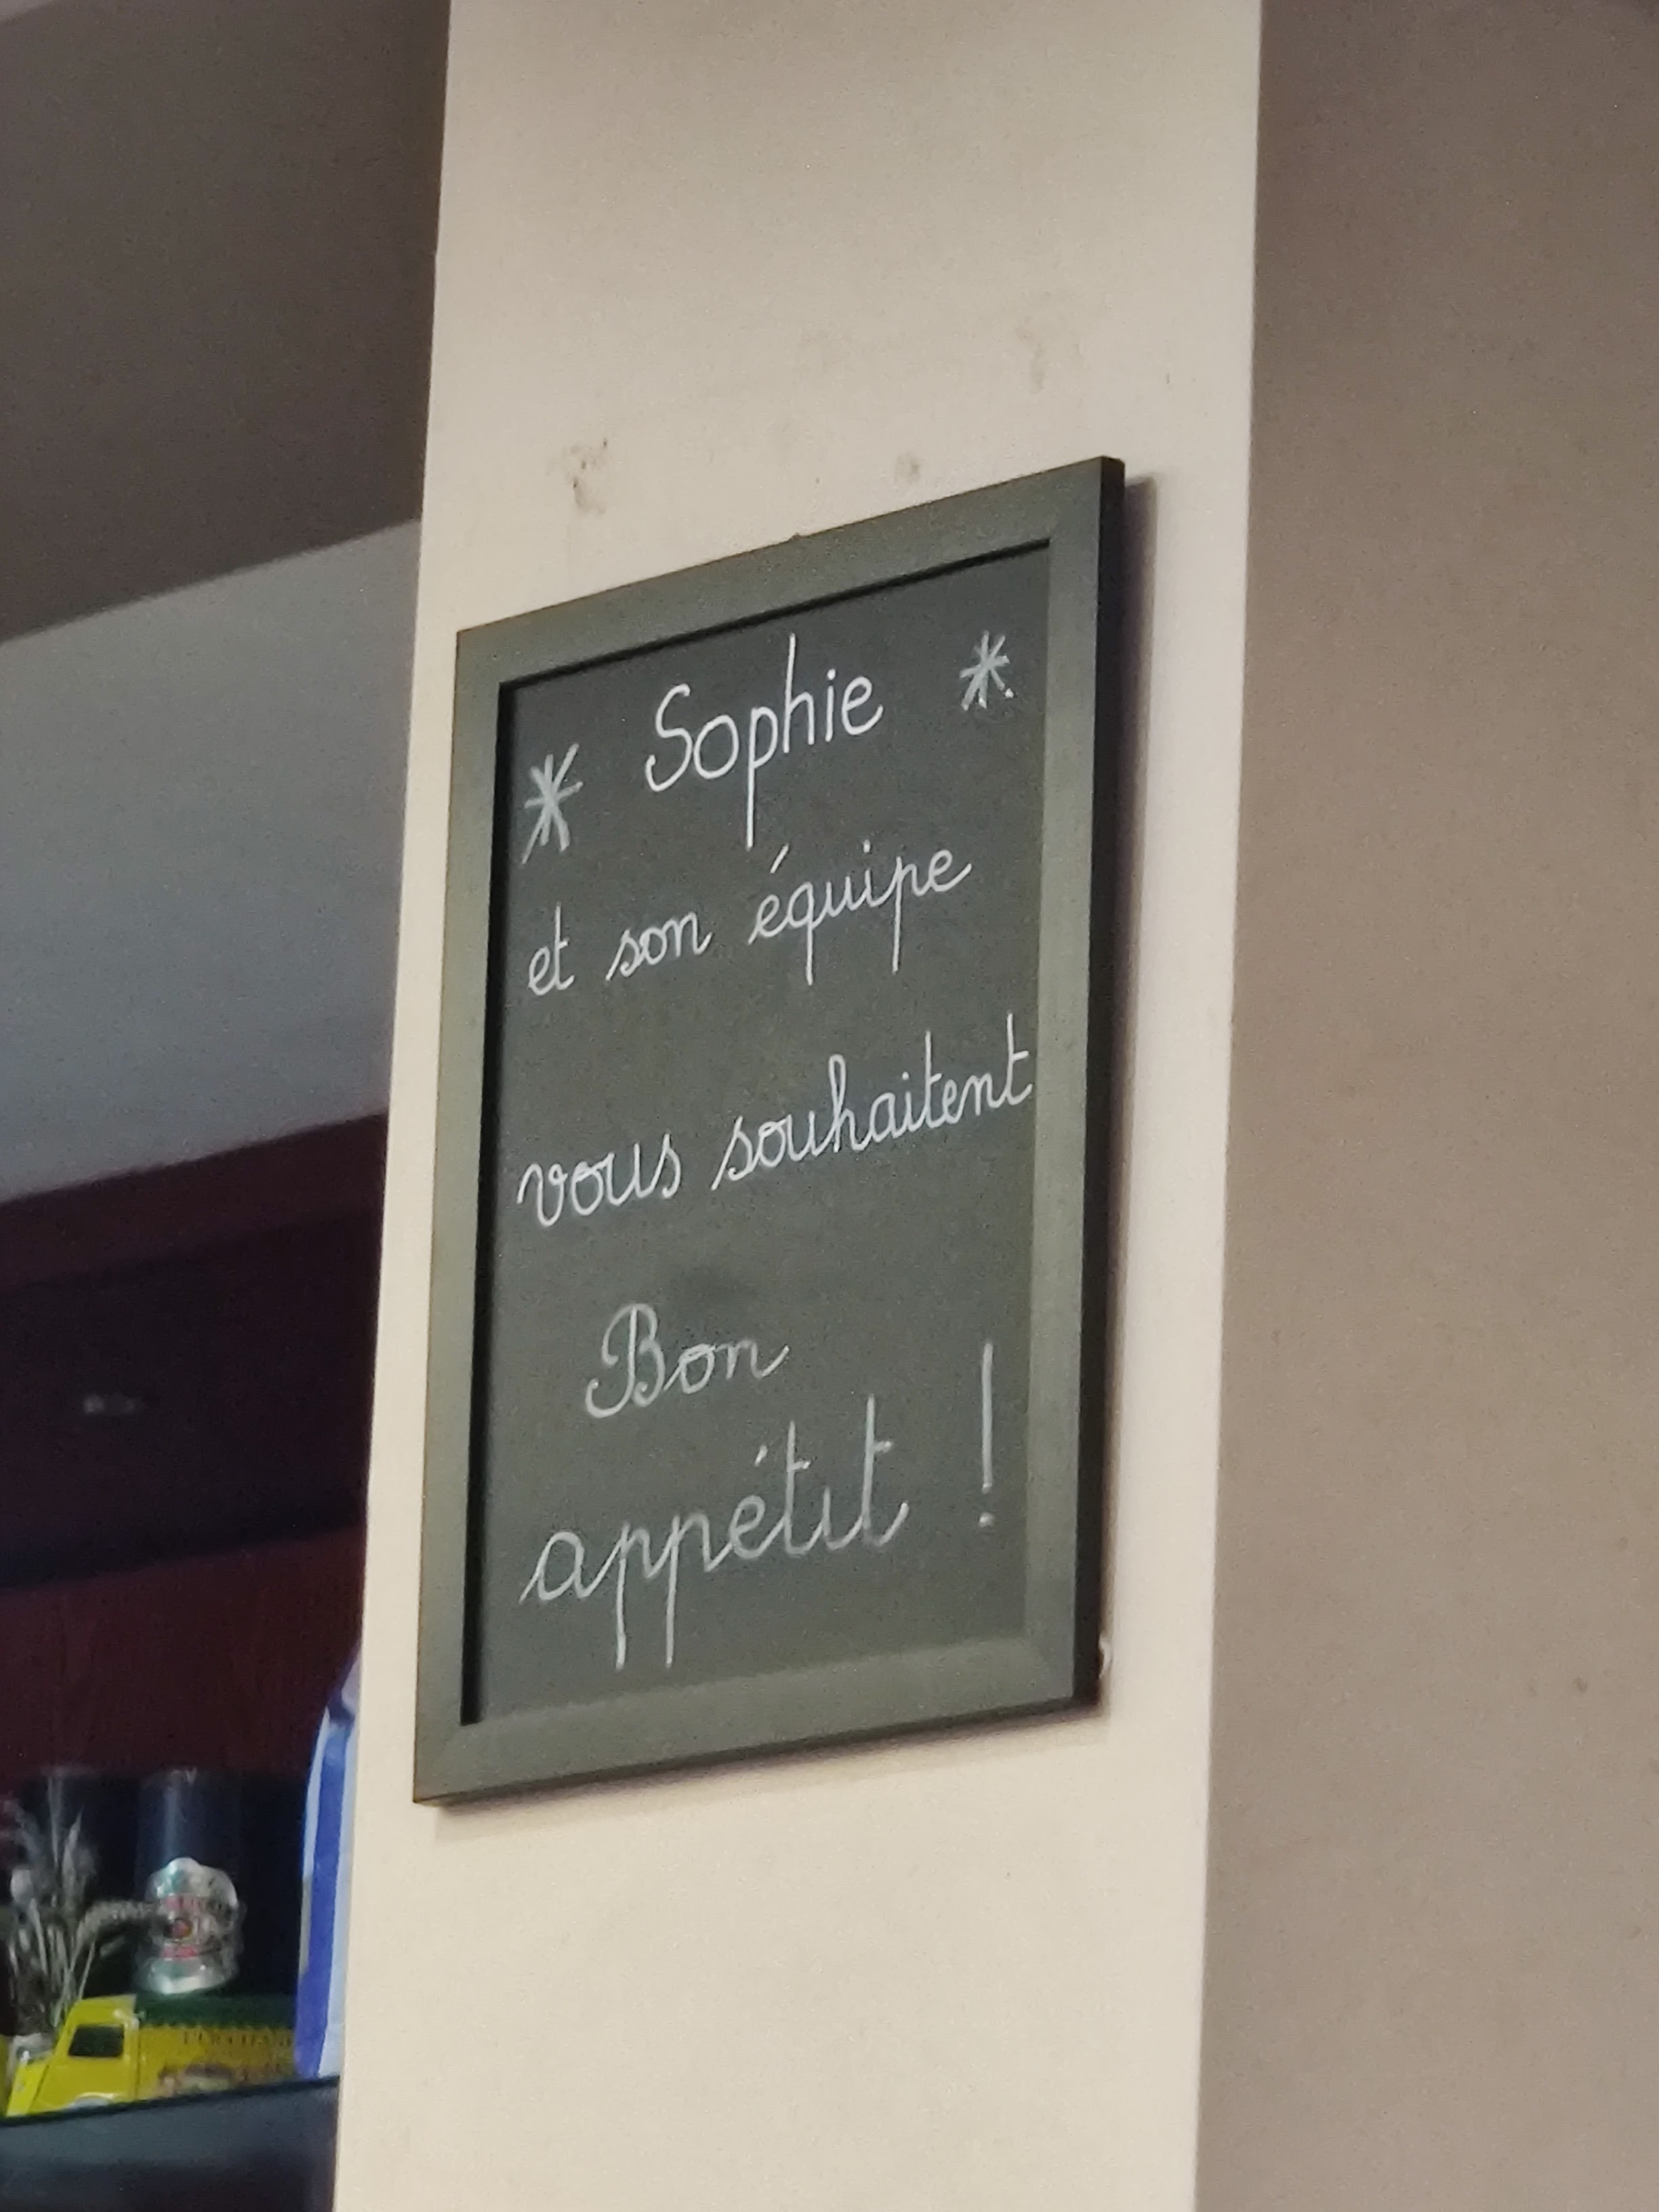 * Sophie *
et son équipe
vous souhaitent
Bon
appétit !